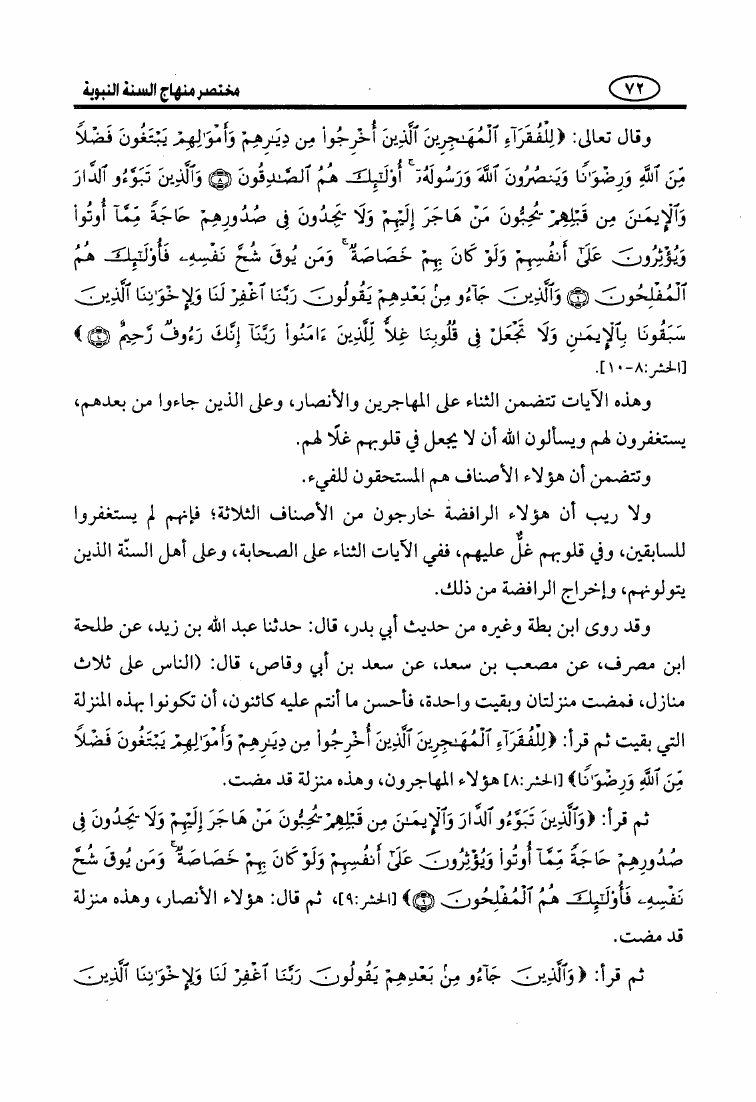 ٧٢
مختصر منهاج السنة النبوية
وقال تعالى: ﴿لِلْفُقَرَآءِ ٱلْمُهَـٰجِرِينَ ٱلَّذِينَ أُخْرِجُوا۟ مِن دِيَـٰرِهِمْ وَأَمْوَٰلِهِمْ يَبْتَغُونَ فَضْلًا
مِّنَ ٱللَّهِ وَرِضْوَٰنًا وَيَنصُرُونَ ٱللَّهَ وَرَسُولَهُۥٓ ۚ أُو۟لَـٰٓئِكَ هُمُ ٱلصَّـٰدِقُونَ ۝٨ وَٱلَّذِينَ تَبَوَّءُو ٱلدَّارَ
وَٱلْإِيمَـٰنَ مِن قَبْلِهِمْ يُحِبُّونَ مَنْ هَاجَرَ إِلَيْهِمْ وَلَا يَجِدُونَ فِى صُدُورِهِمْ حَاجَةً مِّمَّآ أُوتُوا۟
وَيُؤْثِرُونَ عَلَىٰٓ أَنفُسِهِمْ وَلَوْ كَانَ بِهِمْ خَصَاصَةٌ ۚ وَمَن يُوقَ شُحَّ نَفْسِهِۦ فَأُو۟لَـٰٓئِكَ هُمُ
ٱلْمُفْلِحُونَ ۝٩ وَٱلَّذِينَ جَآءُو مِنۢ بَعْدِهِمْ يَقُولُونَ رَبَّنَا ٱغْفِرْ لَنَا وَلِإِخْوَٰنِنَا ٱلَّذِينَ
سَبَقُونَا بِٱلْإِيمَـٰنِ وَلَا تَجْعَلْ فِى قُلُوبِنَا غِلًّا لِّلَّذِينَ ءَامَنُوا۟ رَبَّنَآ إِنَّكَ رَءُوفٌ رَّحِيمٌ ۝١٠﴾
[الحشر:٨-١٠].
وهذه الآيات تتضمن الثناء على المهاجرين والأنصار، وعلى الذين جاءوا من بعدهم،
يستغفرون لهم ويسألون الله أن لا يجعل في قلوبهم غلًا لهم.
وتتضمن أن هؤلاء الأصناف هم المستحقون للفيء.
ولا ريب أن هؤلاء الرافضة خارجون من الأصناف الثلاثة؛ فإنهم لم يستغفروا
للسابقين، وفي قلوبهم غلٌّ عليهم، ففي الآيات الثناء على الصحابة، وعلى أهل السنّة الذين
يتولونهم، وإخراج الرافضة من ذلك.
وقد روى ابن بطة وغيره من حديث أبي بدر، قال: حدثنا عبد الله بن زيد، عن طلحة
ابن مصرف، عن مصعب بن سعد، عن سعد بن أبي وقاص، قال: (الناس على ثلاث
منازل، فمضت منزلتان وبقيت واحدة، فأحسن ما أنتم عليه كائنون، أن تكونوا بهذه المنزلة
التي بقيت ثم قرأ: ﴿لِلْفُقَرَآءِ ٱلْمُهَـٰجِرِينَ ٱلَّذِينَ أُخْرِجُوا۟ مِن دِيَـٰرِهِمْ وَأَمْوَٰلِهِمْ يَبْتَغُونَ فَضْلًا
مِّنَ ٱللَّهِ وَرِضْوَٰنًا﴾ [الحشر:٨] هؤلاء المهاجرون، وهذه منزلة قد مضت.
ثم قرأ: ﴿وَٱلَّذِينَ تَبَوَّءُو ٱلدَّارَ وَٱلْإِيمَـٰنَ مِن قَبْلِهِمْ يُحِبُّونَ مَنْ هَاجَرَ إِلَيْهِمْ وَلَا يَجِدُونَ فِى
صُدُورِهِمْ حَاجَةً مِّمَّآ أُوتُوا۟ وَيُؤْثِرُونَ عَلَىٰٓ أَنفُسِهِمْ وَلَوْ كَانَ بِهِمْ خَصَاصَةٌ ۚ وَمَن يُوقَ شُحَّ
نَفْسِهِۦ فَأُو۟لَـٰٓئِكَ هُمُ ٱلْمُفْلِحُونَ ۝٩﴾ [الحشر:٩]، ثم قال: هؤلاء الأنصار، وهذه منزلة
قد مضت.
ثم قرأ: ﴿وَٱلَّذِينَ جَآءُو مِنۢ بَعْدِهِمْ يَقُولُونَ رَبَّنَا ٱغْفِرْ لَنَا وَلِإِخْوَٰنِنَا ٱلَّذِينَ